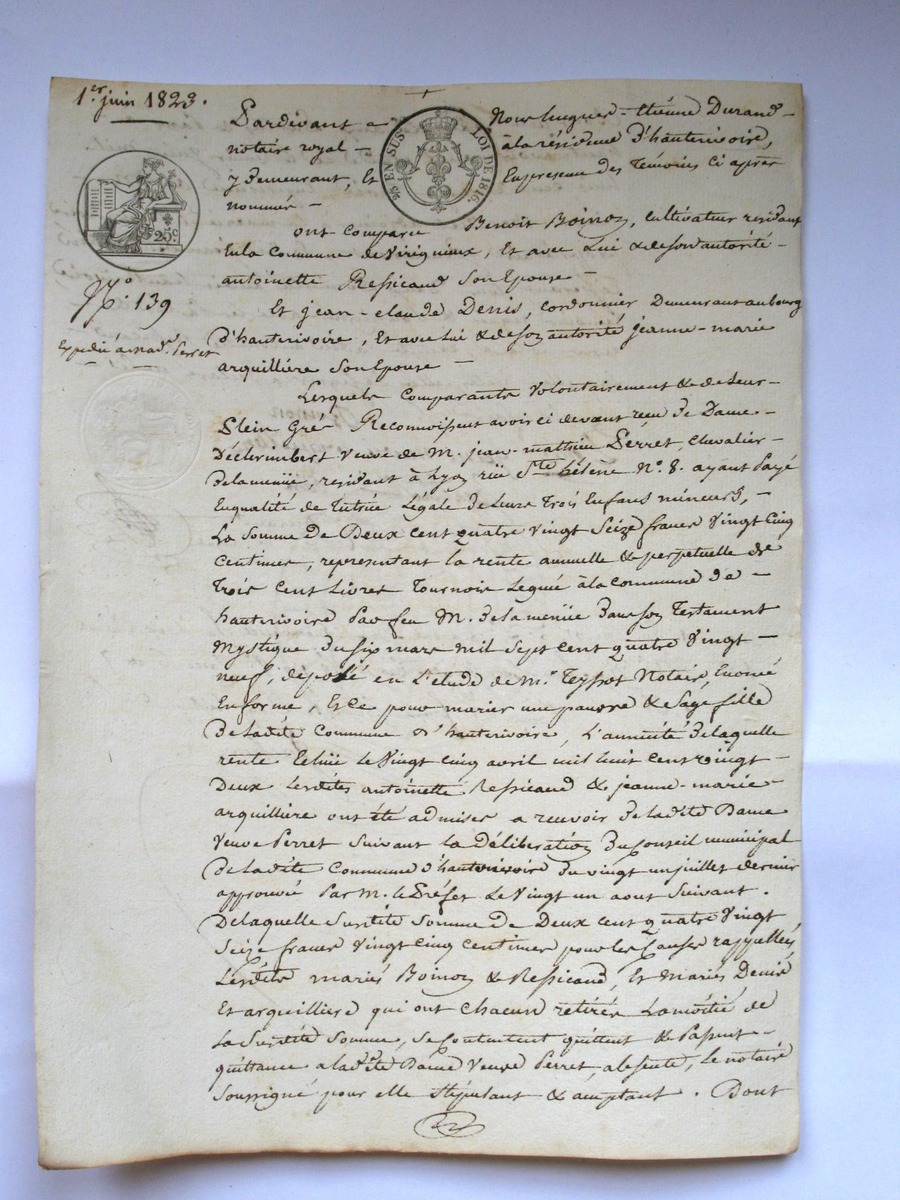 1.er juin 1823.
Pardevant
Nous hugues-étienne Durand-
notaire royal - à la résidence d'hauterivoire,
y demeurant, Et En presence des Temoins Ci après
nommés -
25 EN SUS LOI DE 1816.
25c
ont comparu Benoit Boinon, Cultivateur residant
En la Commune de Virigneux, Et avec Lui & de son autorité -
antoinette Ressicaud Son Epouse -
N.o 139
Et jean-claude Denis, cordonnier Demeurant au bourg
d'hauterivoire, Et avec lui & de son autorité jeanne-marie
Expedié a mad.e Perret
arquillière Son Epouse -
Lesquels Comparants Volontairement & de Leur -
Plein Gré Reconnoissent avoir ci devant reçu de Dame -
Dechrimbert Veuve de M. jean-mathieu Perret, Chevalier -
Delamenüe, residant à Lyon rüe Ste hélène No. 8. ayant Payé
En qualité de Tutrice Légale de Leurs Trois Enfans mineurs, -
La Somme de Deux cent quatre Vingt Seize francs Vingt Cinq
Centimes, representant la rente annuelle & perpetuelle de
Trois Cent Livres Tournois Leguée à la commune d'a -
hauterivoire Par feu M. Delamenüe Dans Son Testament
Mystique du six mars mil Sept cent quatre Vingt -
neuf, déposé en L'etude de M.e Teyssot Notaire, Enoncé
En forme, Et Ce pour marier une pauvre & Sage fille
De Ladite Commune d'hauterivoire, L'annuité de laquelle
rente Echüe Le Vingt Cinq avril mil huit cent vingt -
Deux Lesdites antoinette Ressicaud & jeanne-marie
arquillière ont été admises a recevoir de Ladite Dame
Veuve Perret Suivant La Délibération Du Conseil municipal
De Ladite Commune d'hauterivoire du vingt un juillet dernier
approuvée Par M. le Préfet Le Vingt un aout Suivant.
De laquelle Susdite Somme de Deux cent quatre Vingt
Seize francs Vingt Cinq Centimes pour les Causes rappellées,
Lesdits mariés Boinon & Ressicaud, Et mariés Denis
Et arquillière qui ont chacun retirés La moitié de
La Susdite Somme, Se Contentent quittent & Passent -
quittance a ladite Dame Veuve Perret, absente, Le notaire
Soussigné pour elle Stipulant & acceptant. Dont